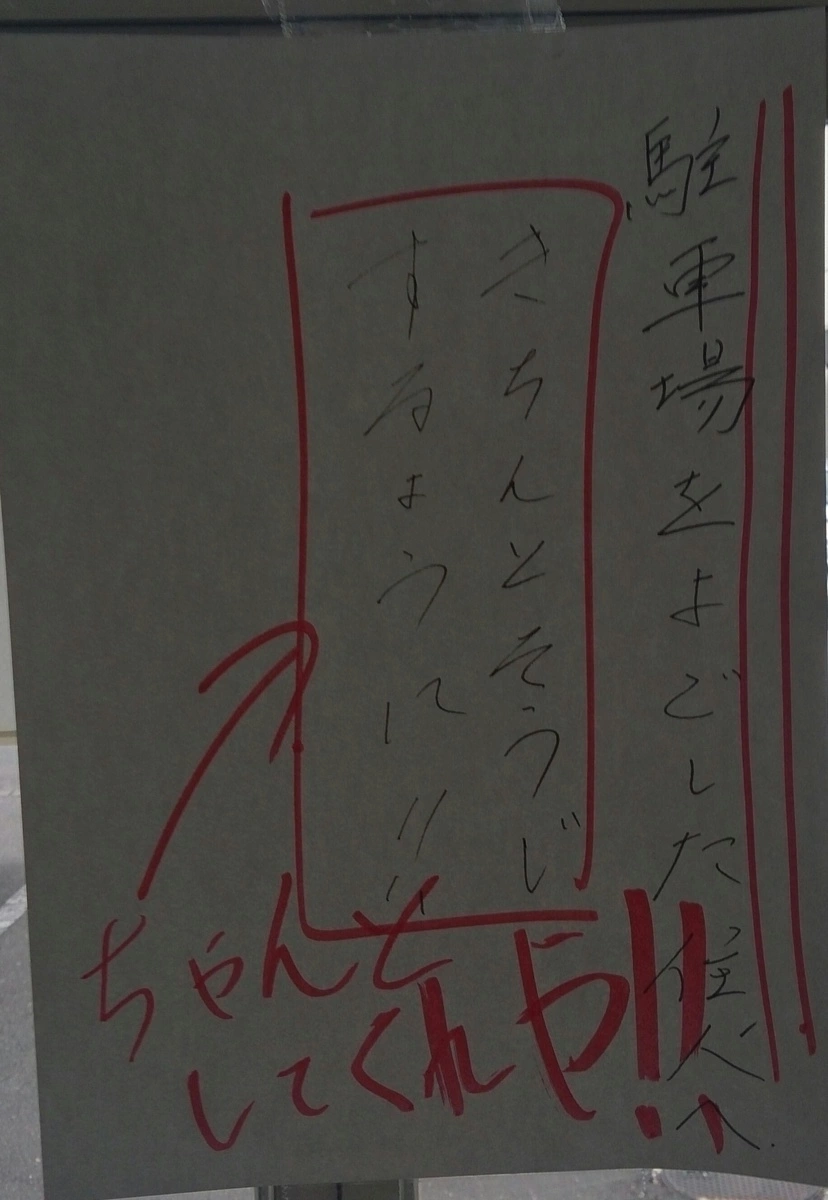 駐車場をよごした住人へ
きちんとそうじ
するように!!
ちゃんと
してくれや!!